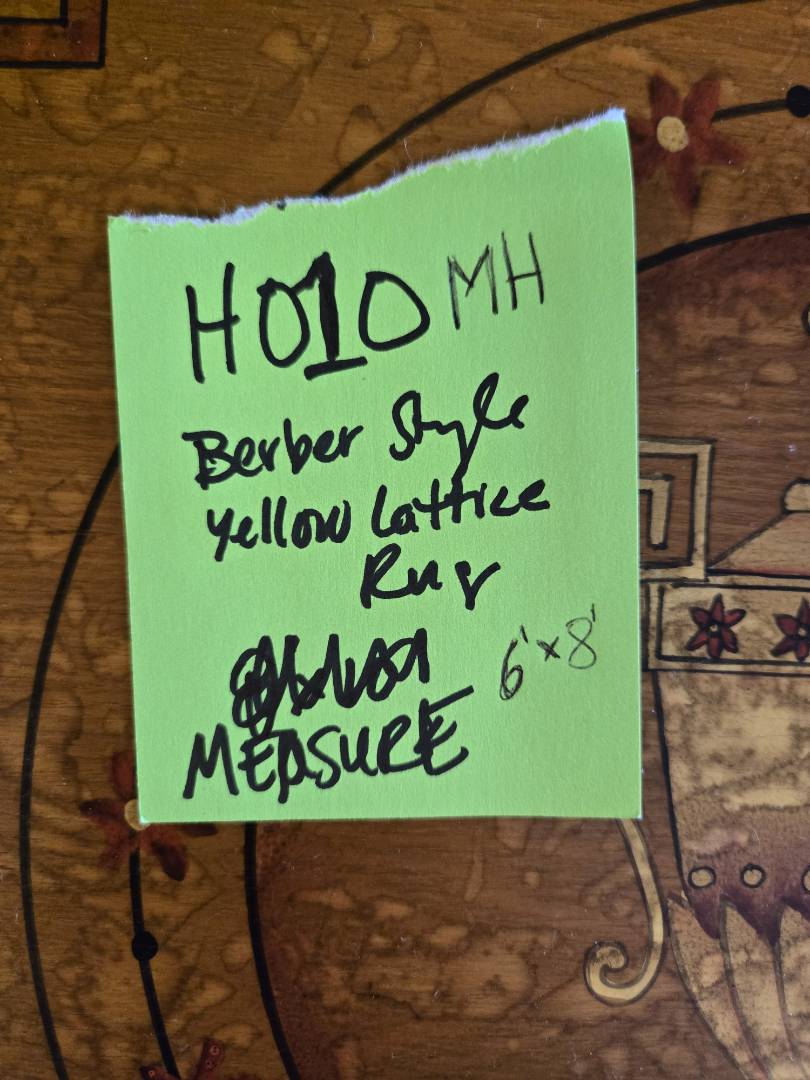 H010 MH
Berber Style
Yellow Lattice
Rug
6'x8'
MEASURE